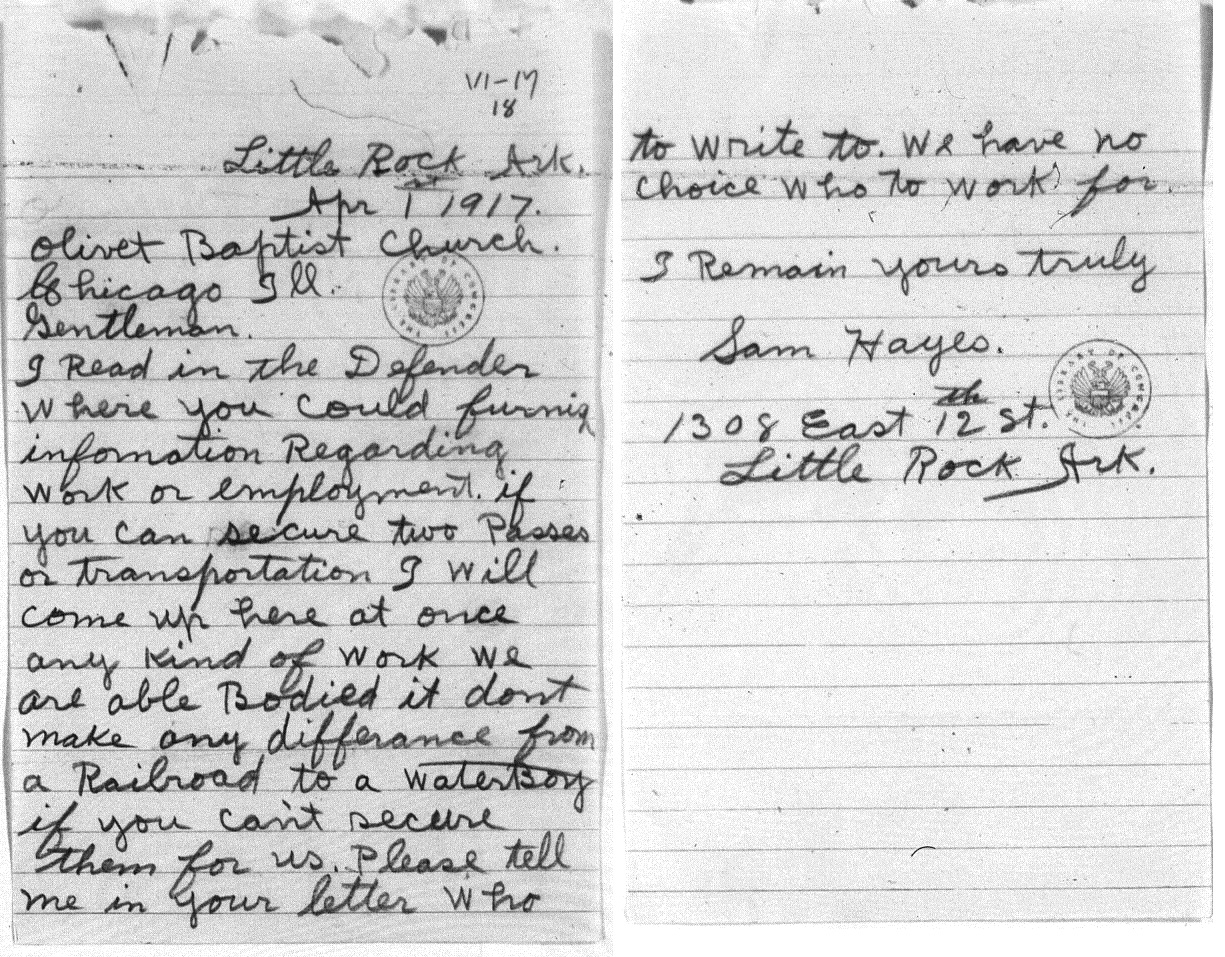 VI-17
18
Little Rock Ark.
Apr 1st 1917.
Olivet Baptist Church.
Chicago Ill.
Gentleman.
I Read in the Defender
where you could furnis
infomation Regarding
work or employment. if
you can secure two Passes
or transportation I will
come up here at once
any kind of work we
are able Bodied it dont
make any differance from
a Railroad to a waterBoy
if you can't secure
them for us. Please tell
me in your letter who
to write to. We have no
choice who to work for.
I Remain yours truly
Sam Hayes.
1308 East 12th St.
Little Rock Ark.
THE LIBRARY OF CONGRESS
THE LIBRARY OF CONGRESS